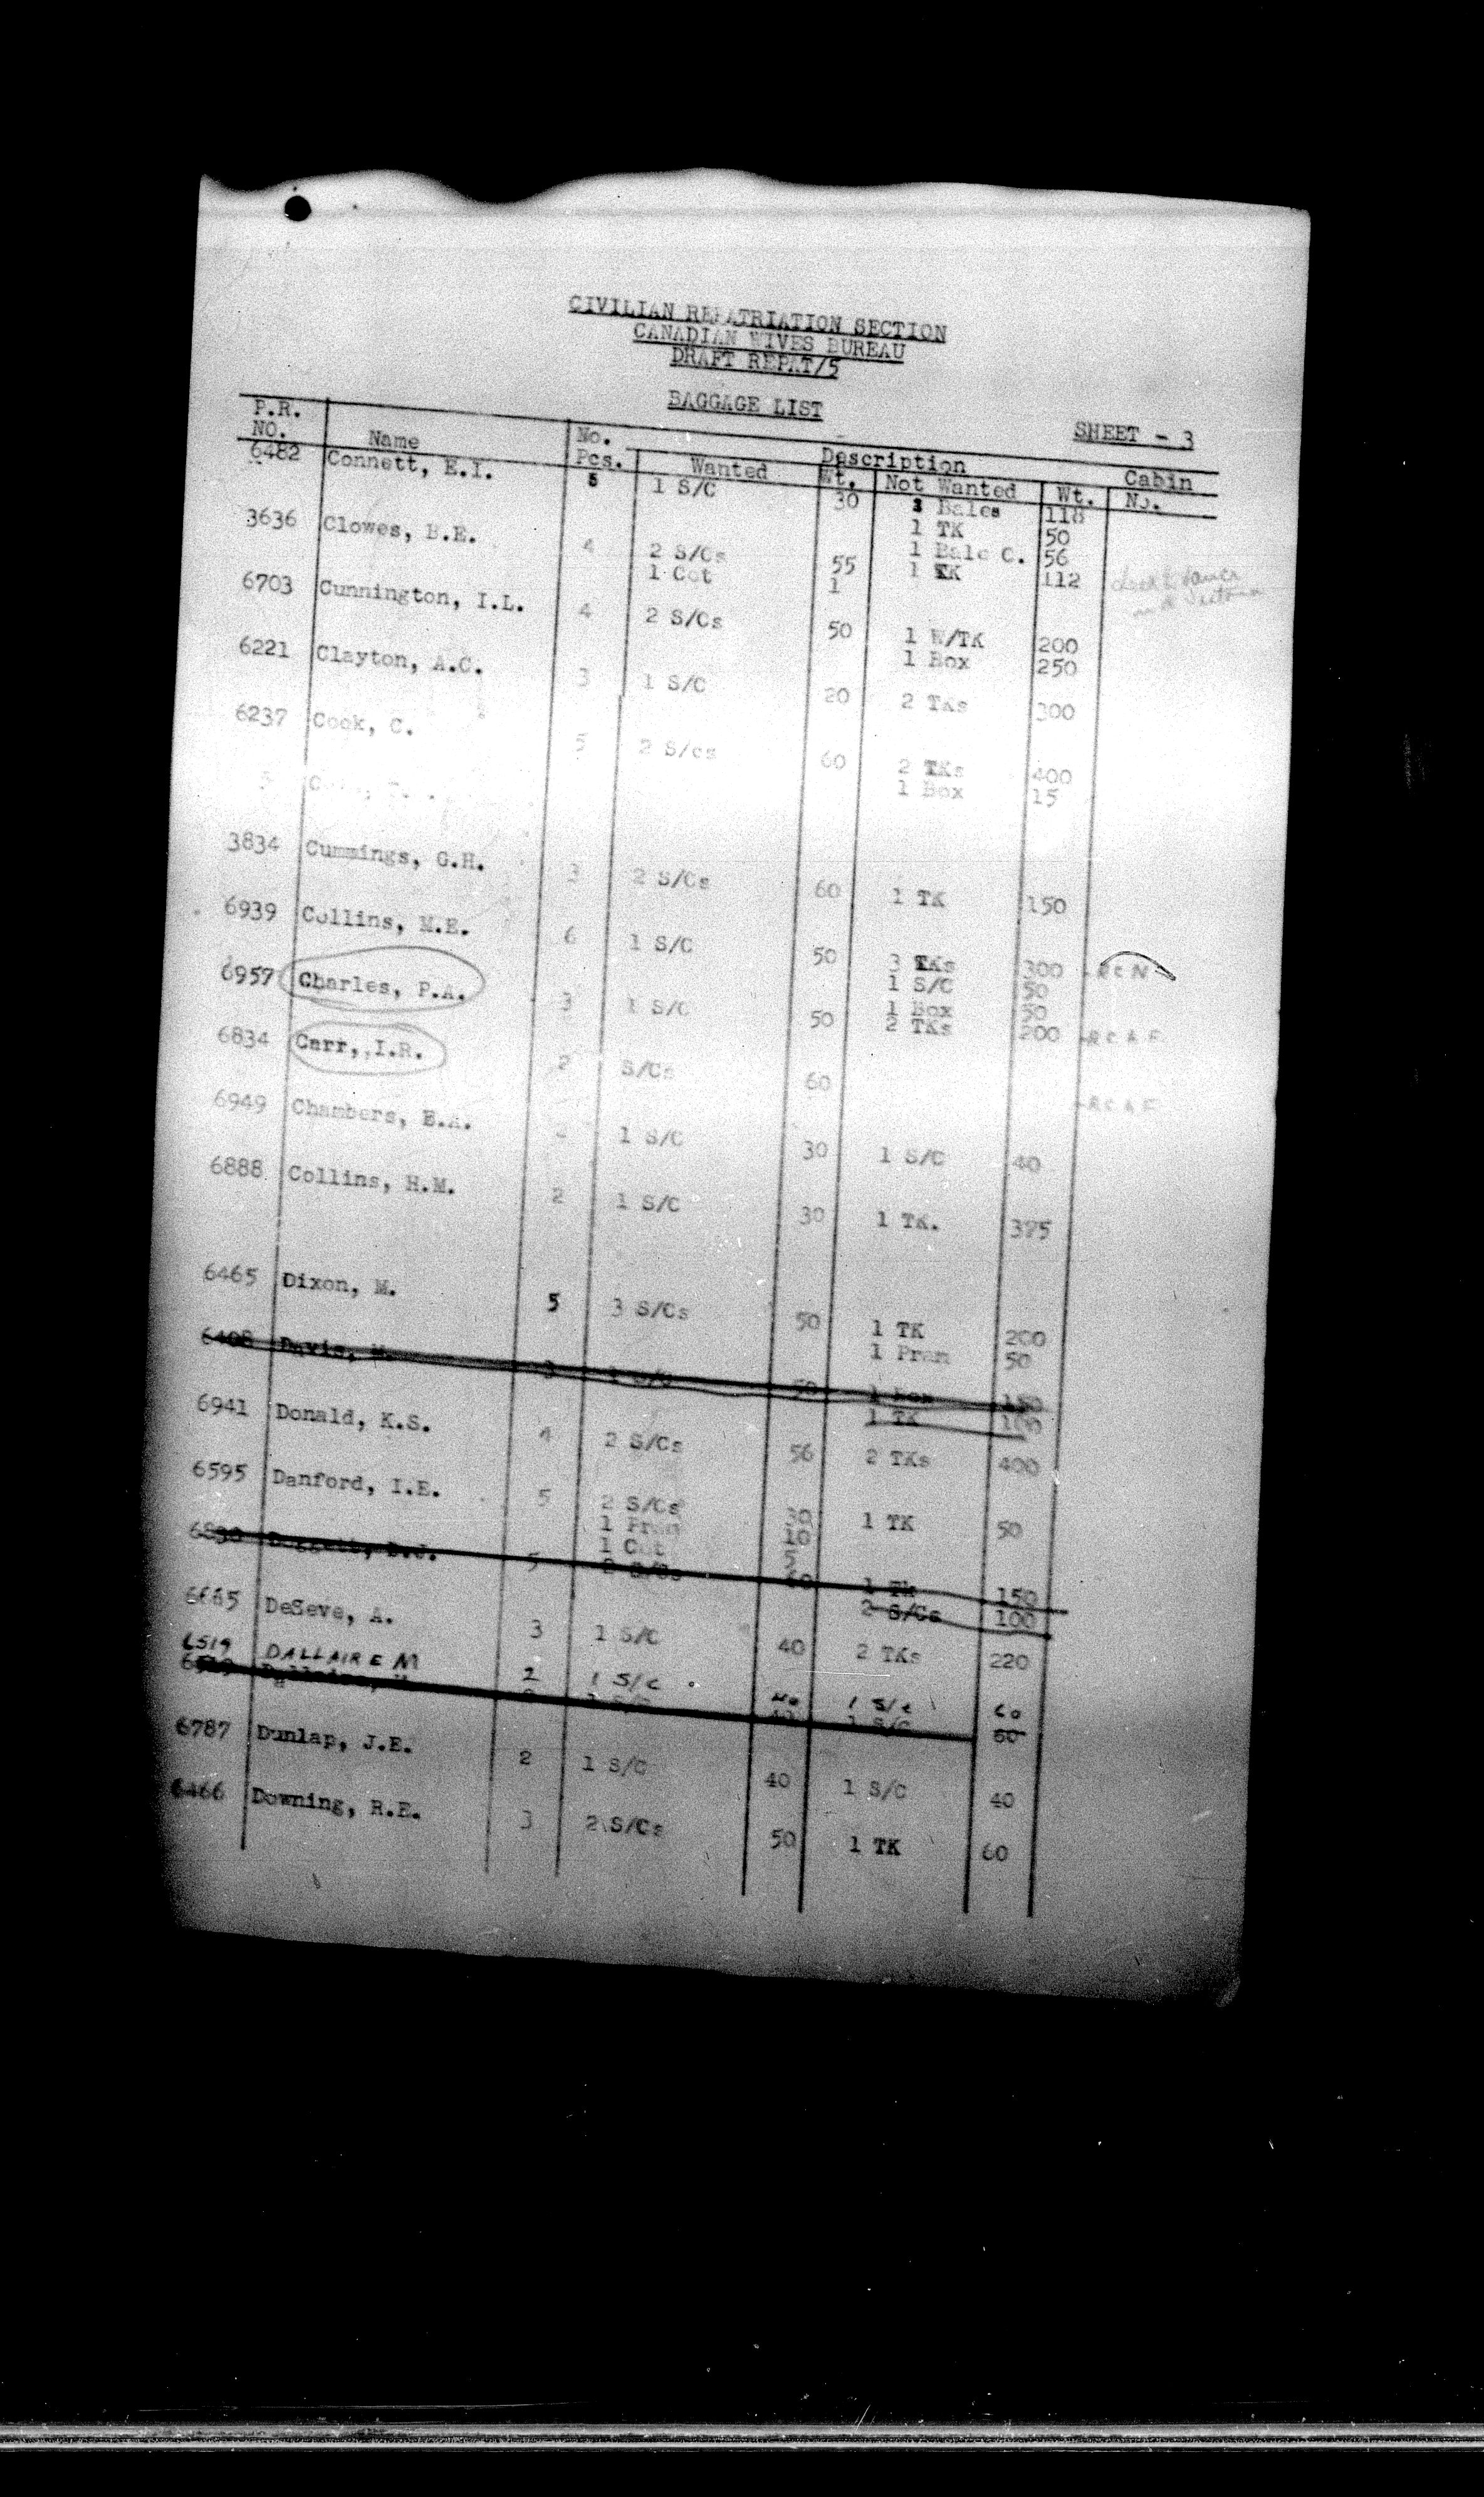 CIVILIAN REPATRIATION SECTION
CANADIAN WIVES BUREAU
DRAFT REPAT/5
BAGGAGE LIST
SHEET - 3
P.R. NO. Name No. Pcs. Description Wanted Wt. Not Wanted Wt. Cabin No.
6482 Connett, E.I. 5 1 S/C 30 3 Bales 118
1 TK 50
1 Bale C. 56
3636 Clowes, B.E. 4 2 S/Cs 55 1 TK 112
1 Cot 1
6703 Cunnington, I.L. 4 2 S/Cs 50 1 W/TK 200
1 Box 250
6221 Clayton, A.C. 3 1 S/C 20 2 TKs 300
6237 Cook, C. 5 2 S/cs 60 2 TKs 400
1 Box 15
3834 Cummings, G.H. 3 2 S/Cs 60 1 TK 150
6939 Collins, M.E. 6 1 S/C 50 3 TKs 300 - R C N
1 S/C 50
1 Box 50
6957 Charles, P.A. 3 1 S/C 50 2 TKs 200 - R C A F
6834 Carr, I.R. 2 S/Cs 60 - R C A F
6949 Chambers, E.A. 2 1 S/C 30 1 S/C 40
6888 Collins, H.M. 2 1 S/C 30 1 TK. 375
6465 Dixon, M. 5 3 S/Cs 50 1 TK 200
1 Pram 50
6408 Davis, M. 3 1 S/C 50 1 Box 150
1 TK 100
6941 Donald, K.S. 4 2 S/Cs 56 2 TKs 400
6595 Danford, I.E. 5 2 S/Cs 30 1 TK 50
1 Pram 10
1 Cot 5
5 2 S/Cs 1 TK 150
2 S/Cs 100
6665 DeSeve, A. 3 1 S/C 40 2 TKs 220
6519 DALLAIRE M 2 1 S/C 40 1 S/C 60
1 S/C 60
6787 Dunlap, J.E. 2 1 S/C 40 1 S/C 40
6466 Downing, R.E. 3 2 S/Cs 50 1 TK 60